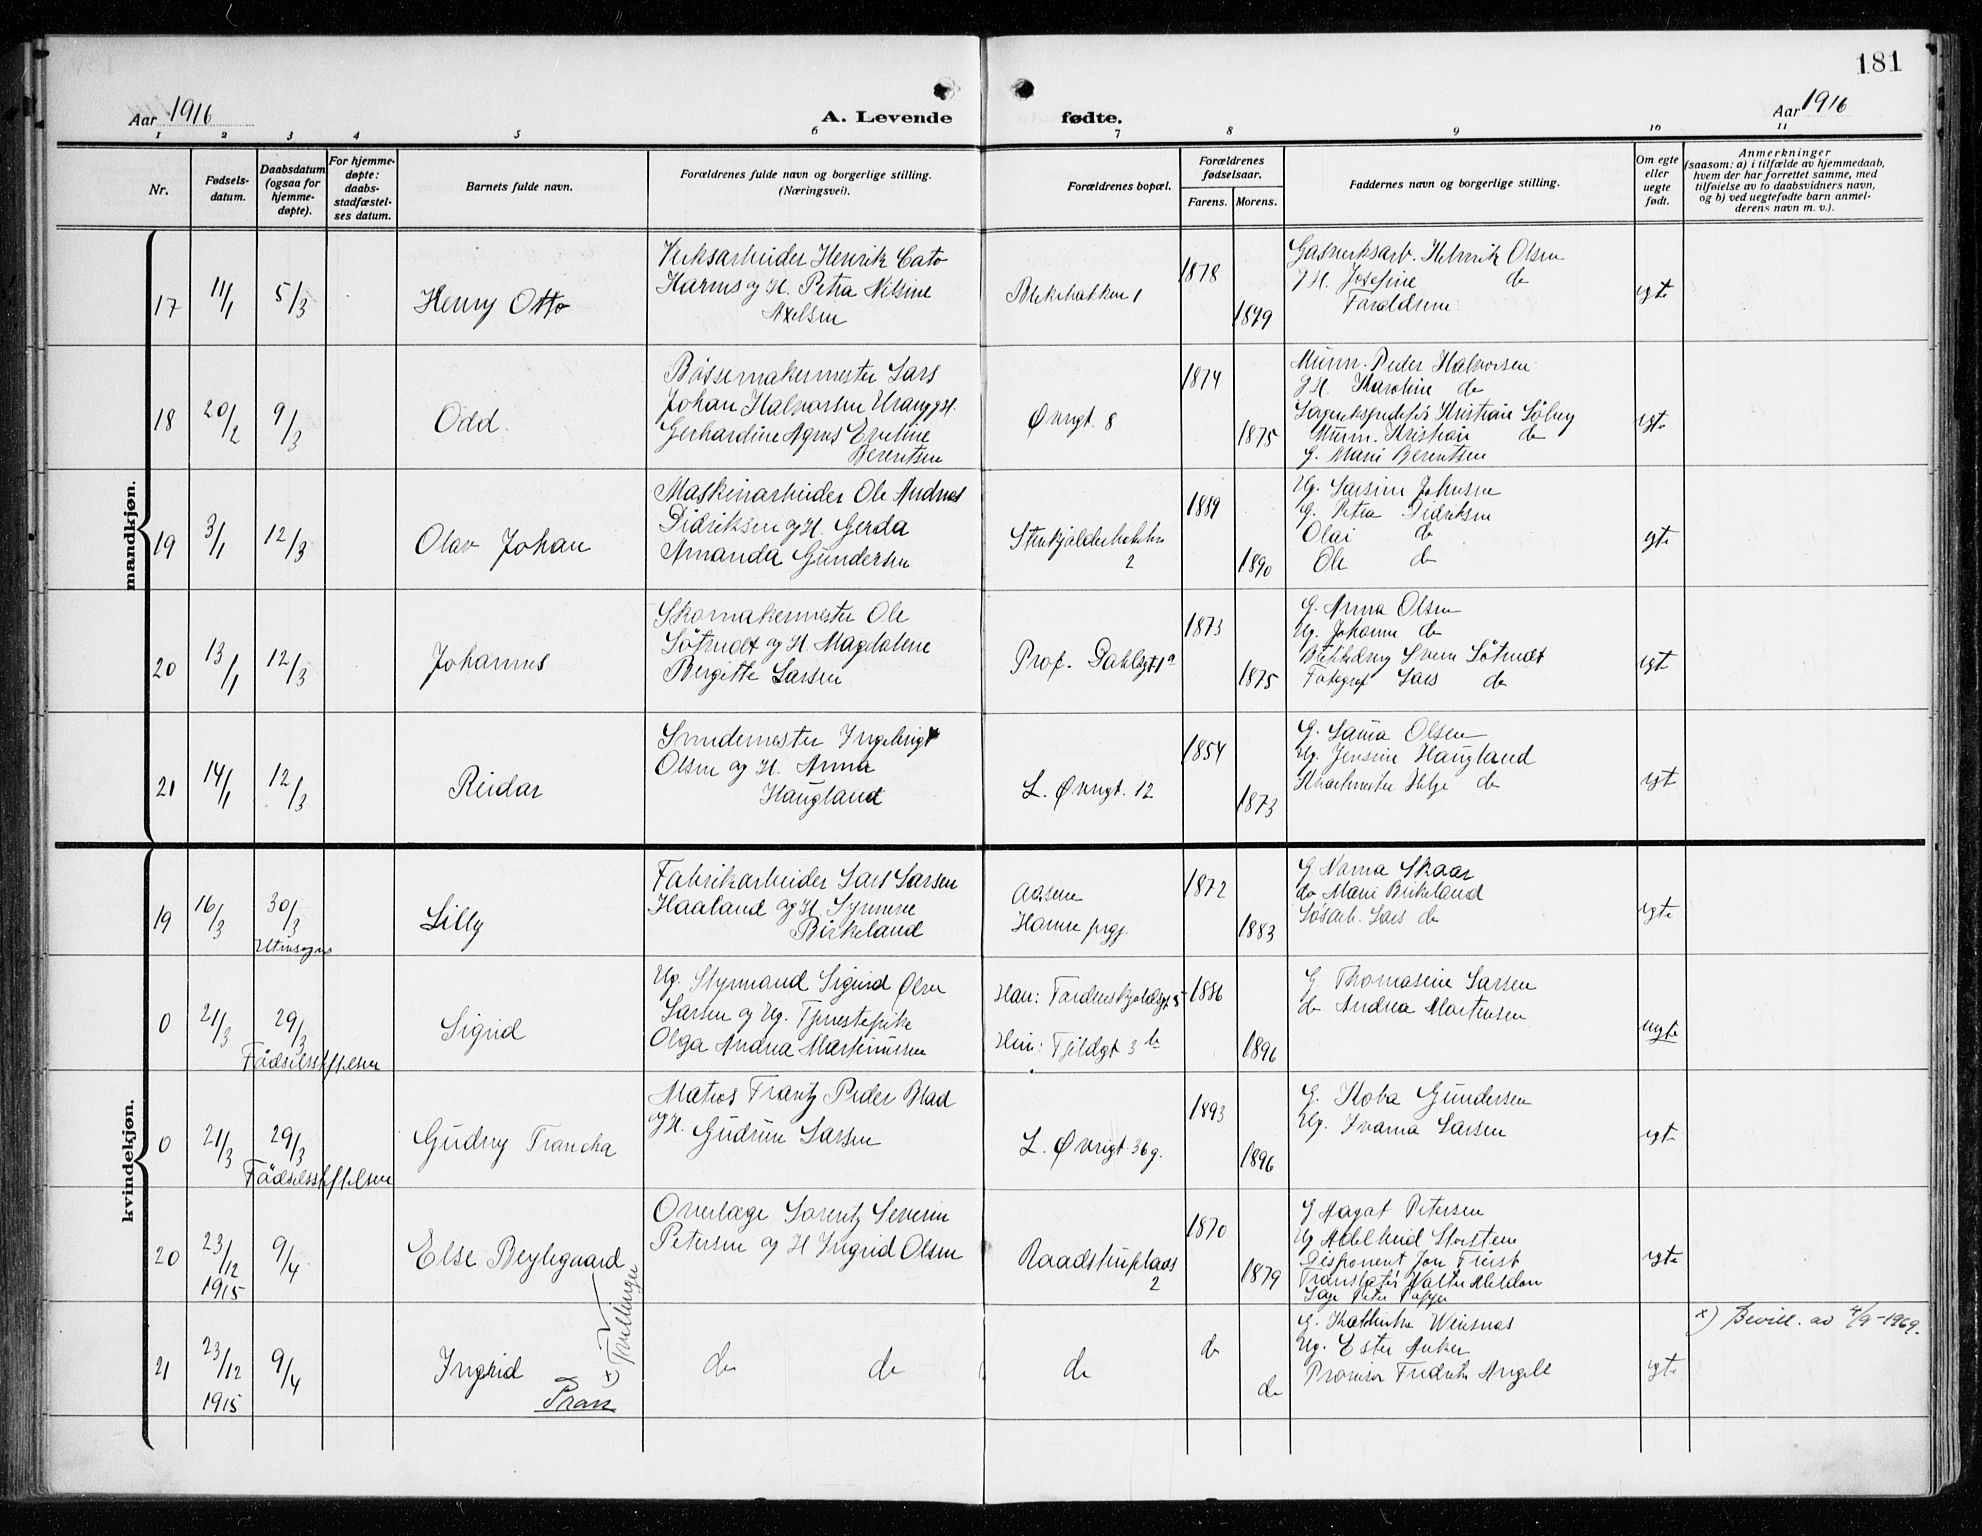 181
Aar 1916
A. Levende
fødte.
Aar 1916
1 2 3 4 5 6 7 8 9 10 11
Nr.
Fødsels-
datum.
Daabsdatum
(ogsaa for
hjemme-
døpte).
For hjemme-
døpte:
daabs-
stadfæstel-
ses datum.
Barnets fulde navn.
Forældrenes fulde navn og borgerlige stilling.
(Næringsvei).
Forældrenes bopæl.
Forældrenes
fødselsaar.
Farens. Morens.
Faddernes navn og borgerlige stilling.
Om egte
eller
uegte
født.
Anmerkninger
(saasom: a) i tilfælde av hjemmedaab,
hvem der har forrettet samme, med
tilføielse av to daabsvidners navn,
og b) ved uegtefødte barn anmel-
derens navn m. v.).
mandkjøn.
17 11/1 5/3 Henry Otto
Verksarbeider Henrik Cato
Harms og H. Petra Nilsine
Axelsen
Blekebakken 1
1878
1879
Gasverksarb. Henrik Olsen
g H. Josefine do
Forældrene
egte
18 20/2 9/3 Odd.
Bøssemakermester Lars
Johan Halvorsen Urang g H.
Gerhardine Agnes Eveline
Berentsen
Øvregt. 8
1874
1875
Murm. Peder Halvorsen
g H. Karoline do
Kristian Söberg
Murm. Kristian do
G. Marie Berentsen
egte
19 3/1 12/3 Olav Johan
Maskinarbeider Ole Andreas
Didriksen og H. Gerda
Amanda Gundersen
Stenkjælderbakken
2
1889
1890
Ug. Larsine Johnsen
G. Petra Didriksen
Olai do
Ole do
egte
20 13/1 12/3 Johannes
Skomakermester Ole
Søtvedt og H. Magdalene
Bergitte Larsen
Prof. Dahlsgt 1a
1873
1875
G. Anna Olsen
Ug. Johanne do
Svein Søtvedt
Fotograf Lars do
egte
21 14/1 12/3 Reidar
Smedemester Ingebrigt
Olsen og H. Anna
Haugland
L. Øvregt. 12
1854
1873
G. Laura Olsen
Ug. Jensine Haugland
Helge do
egte
kvindekjøn.
19 16/3 30/3 Lilly
Utensogns
Fabrikarbeider Lars Larsen
Haaland og H. Synneve
Birkeland
Aasene
Hamre prgj.
1872
1883
G. Norma Skaar
do Marie Birkeland
Løsarb. Lars do
egte
0 21/3 29/3 Sigrid
Fødselsstiftelsen
Ug. Styrmand Sigurd Olen
Larsen og Ug. Tjenestepike
Olga Andrea Martinussen
Han: Tordenskjoldsgt. 5
Hun: Fjeldgt 3 b
1886
1896
G. Thomasine Larsen
do Andrea Mortensen
uegte
0 21/3 29/3 Gudny Francha
Fødselsstiftelsen
Matros Frantz Peder Blad
og H. Gudrun Larsen
L. Øvregt 36 g.
1893
1896
G. Koba Gundersen
Ug. Ivarna Larsen
egte
20 23/12 1915 9/4 Else Beylegaard
Overlæge Lorentz Severin
Petersen og H Ingrid Olsen
Raadstuplads
2
1870
1879
G Magat Petersen
Ug Adelheid Torsteen
Disponent Jon Friist
Translatør
Læge Peter
egte
21 23/12 1915 9/4 Ingrid
Tvillinger
x)
do do
do
do
do
Ug. Ester Anker
Provisor Fredrik Angell
egte
x) Bevill. av 4/9-1969.